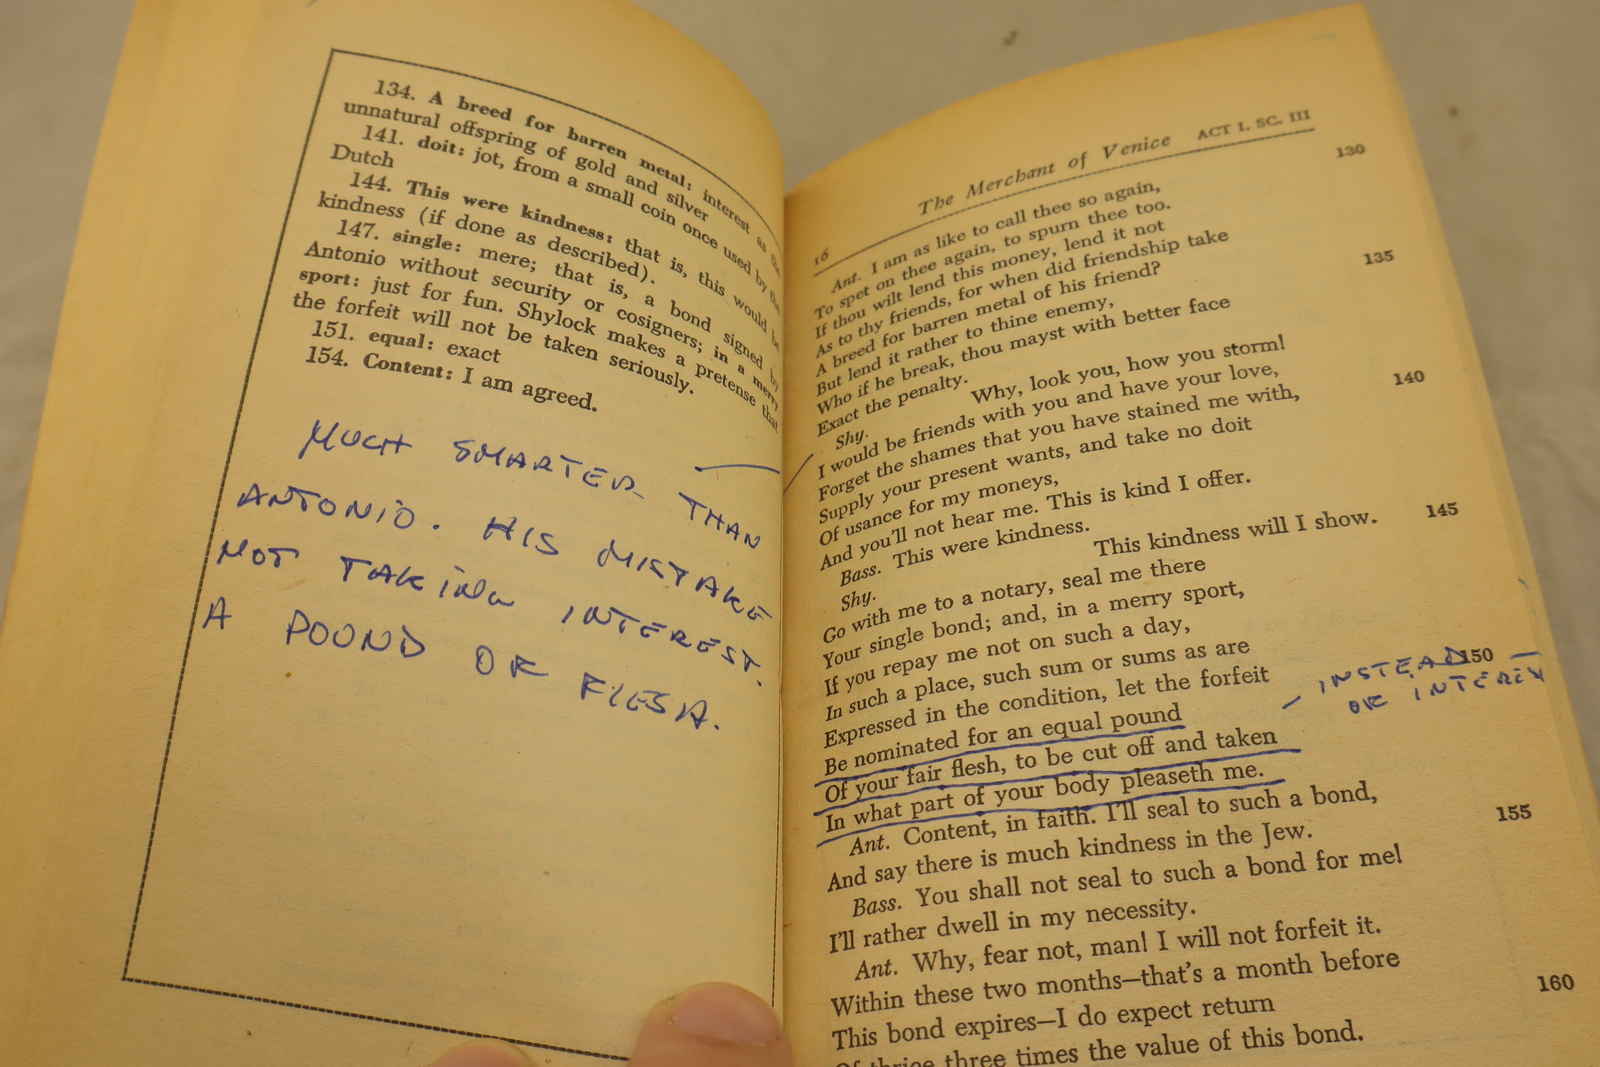 134. A breed for barren metal: interest as the
unnatural offspring of gold and silver
141. doit: jot, from a small coin once used by the
Dutch
144. This were kindness: that is, this would be
kindness (if done as described).
147. single: mere; that is, a bond signed by
Antonio without security or cosigners; in a merry
sport: just for fun. Shylock makes a pretense that
the forfeit will not be taken seriously.
151. equal: exact
154. Content: I am agreed.
MUCH SMARTER THAN
ANTONIO. HIS MISTAKE
NOT TAKING INTEREST.
A POUND OF FLESH.
16 The Merchant of Venice ACT I. SC. III
Ant. I am as like to call thee so again, 130
To spet on thee again, to spurn thee too.
If thou wilt lend this money, lend it not
As to thy friends, for when did friendship take
A breed for barren metal of his friend?
But lend it rather to thine enemy, 135
Who if he break, thou mayst with better face
Exact the penalty.
Shy. Why, look you, how you storm!
I would be friends with you and have your love,
Forget the shames that you have stained me with,
Supply your present wants, and take no doit 140
Of usance for my moneys,
And you'll not hear me. This is kind I offer.
Bass. This were kindness.
Shy. This kindness will I show.
Go with me to a notary, seal me there 145
Your single bond; and, in a merry sport,
If you repay me not on such a day,
In such a place, such sum or sums as are
Expressed in the condition, let the forfeit
Be nominated for an equal pound 150
Of your fair flesh, to be cut off and taken
In what part of your body pleaseth me.
– INSTEAD
OF INTEREST
Ant. Content, in faith. I'll seal to such a bond,
And say there is much kindness in the Jew.
Bass. You shall not seal to such a bond for me! 155
I'll rather dwell in my necessity.
Ant. Why, fear not, man! I will not forfeit it.
Within these two months—that's a month before
This bond expires—I do expect return
Of thrice three times the value of this bond. 160